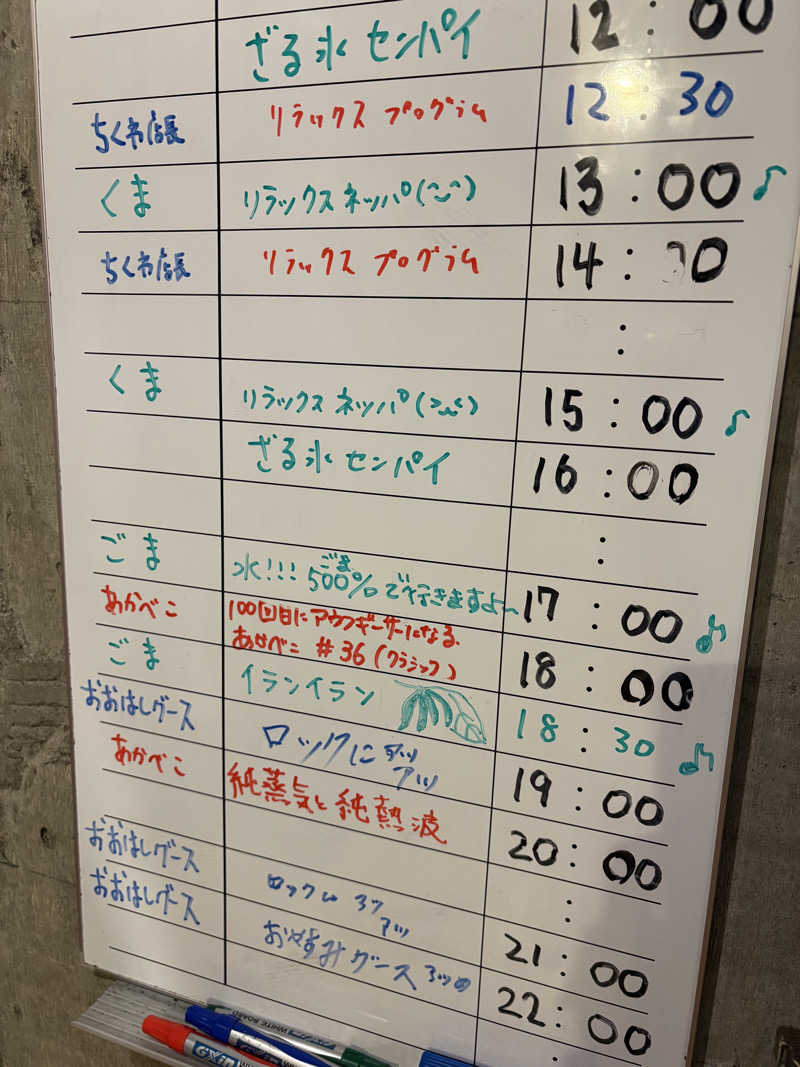 ざる氷 センパイ 12:00
ちくわ店長 リラックス プログラム 12:30
くま リラックスネッパ(^‿^) 13:00♪
ちくわ店長 リラックス プログラム
14:
:
くま リラックスネッパ 15:00♪
ざる氷 センパイ 16:00
:
ごま
ごま
氷!!! 500%で行きますよ〜 17:00♪
あかべこ
100回目にアウフギーサーになる
あかべこ #36(クラシック) 18:00
ごま イランイラン 18:30♪
おおはしグース ロックに
アツ
19:00
あかべこ 純蒸気と純熱波 20:00
:
おおはしグース ロック
アツ
21:00
おおはしグース おやすみグース 22:00
:
WHITE BOARD